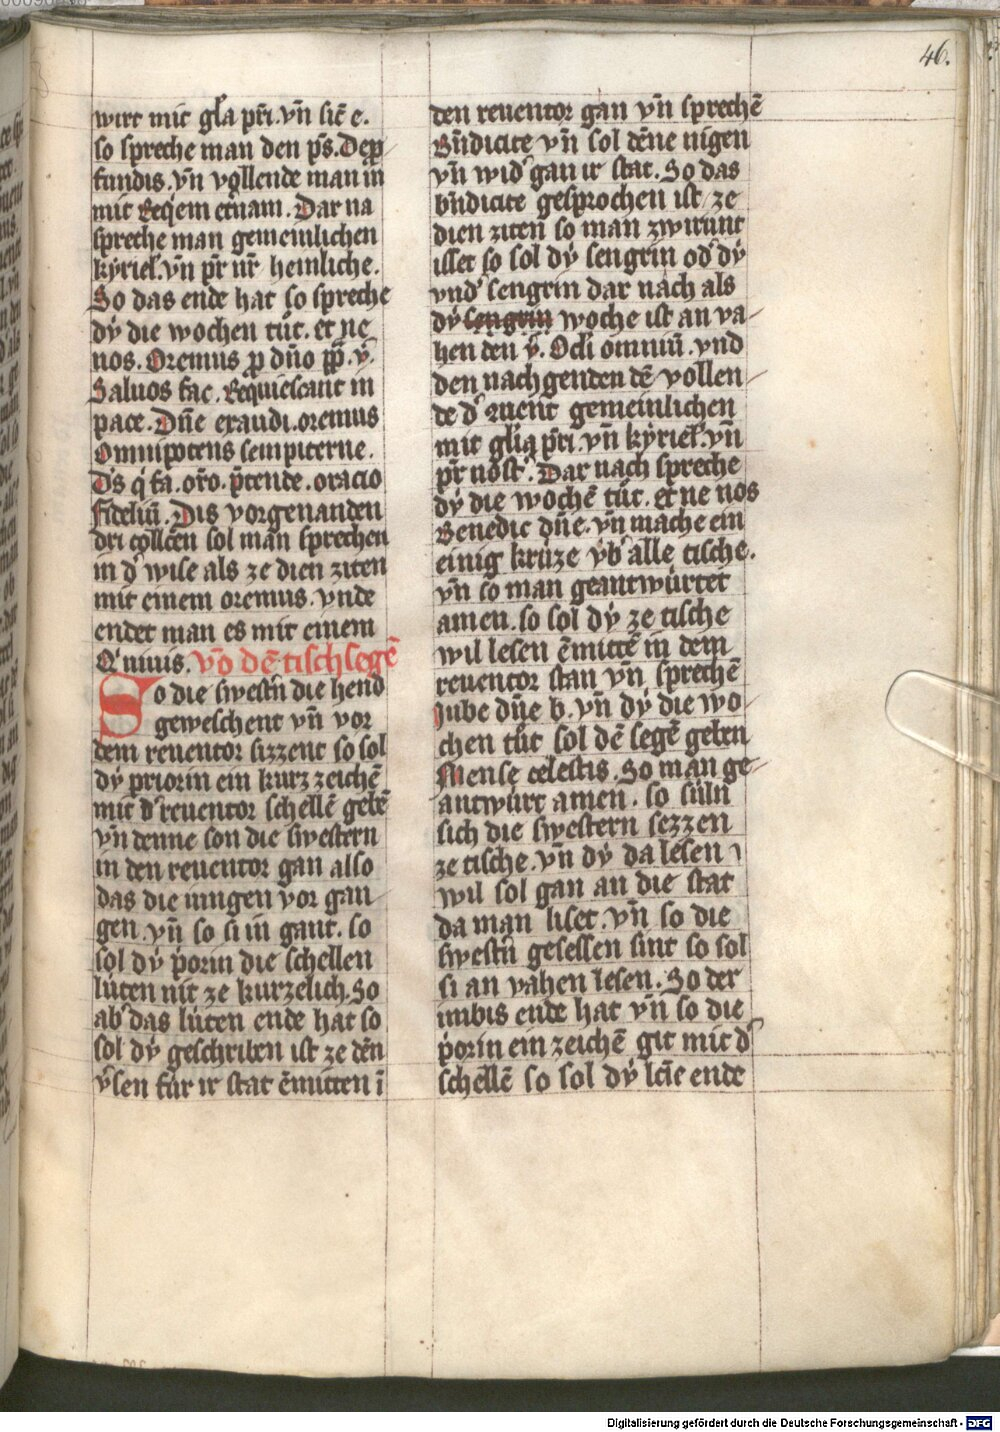 46.
wirt mit gl̄a pr̄i. vn̄ sic̄ e.
so spreche man den ps̄. Dep̱
fundis. vn̄ vollende man in
mit Req̇em et̄nam. Dar na
spreche man gemeinlichen
kẏriel̄. vn̄ pr̄ nr̄ heinliche.
So das ende hat so spreche
dv̇ die wochen tůt. et ne
nos. Oremus ꝓ dn̄o pp̄. v̇.
Saluos fac. Requiescant in
pace. Dn̄e exaudi. oremus
Omnipotens sempiterne.
Ds̄ q̇ fa. or̄o. p̄tende. oracio
fideliū. Dis vorgenanden
dri coll̄cen sol man sprechen
in dˢ wise als ze dien ziten
mit einem oremus. vnde
endet man es mit einem
Q̇ niuis. vō dē tisch segē
So die swest̄n die hend
geweschent vn̄ vor
dem reuentor sizzent so sol
dv̇ priorin ein kurz zeichē
mit dˢ reuentor schellē gebē
vn̄ denne son die swestern
in den reuentor gan also
das die iungen vor gan
gen. vn̄ so si in gant. so
sol dv̇ p̓orin die schellen
lúten nit ze kurzelich. So
abˢ das lúten ende hat so
sol dv̇ geschriben ist ze dēn
v̇sen fúr ir stat ēmitten ī
den reuentor gan vn̄ sprechē
Bn̄dicite vn̄ sol dēne nigen
vn̄ widˢ gan ir stat. So das
bn̄dicite gesprochen ist / ze
dien ziten so man zwirunt
isset so sol dv̇ sengrin odˢ dv̇
vndˢ sengrin dar nach als
dv̇ sengrin woche ist an va/
hen den v̇. Ocl̄i omniū. vnd
den nachgenten dē vollen/
de dˢ ꝯuent gemeinlichen
mit gl̄ia pr̄i. vn̄ kẏriel̄. vn̄
pr̄ nostˢ. Dar nach spreche
dv̇ die wochē tůt. et ne nos
Benedic dn̄e. vn̄ mache ein
einig krúze v́bˢ alle tische.
vn̄ so man geantwúrtet
amen. so sol dv̇ ze tische
wil lesen ēmittē in dem
reuentor stan vn̄ sprechē
Jube dn̄e b. vn̄ dv̇ die wo/
chen tůt sol dē segē geben
Mense celestis. So man ge/
antwúrt amen. so súln
sich die swestern sezzen
ze tische. vn̄ dv̇ da lesen
wil sol gan an die stat
da man liset. vn̄ so die
swest̄n gesessen sint so sol
si an vahen lesen. So der
inbis ende hat vn̄ so die
p̓orin ein zeichē git mit dˢ
schellē so sol dv̇ lc̄ie ende
Digitalisierung gefördert durch die Deutsche Forschungsgemeinschaft - DFG